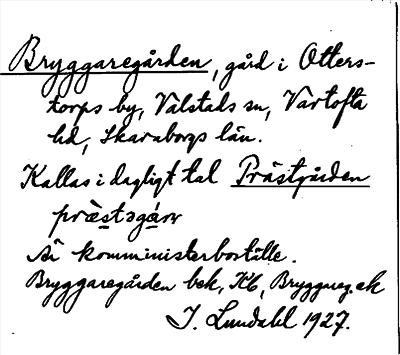 Bryggaregården, gård i Otters-
torps by, Valstads sn, Vartofta
hd, Skaraborgs län.
Kallas i dagligt tal Prästgården
præ̀stsgáɳ
Är komministerboställe.
Bryggaregården bek, Kb, Bryggareg. ek
I. Lundahl 1927.